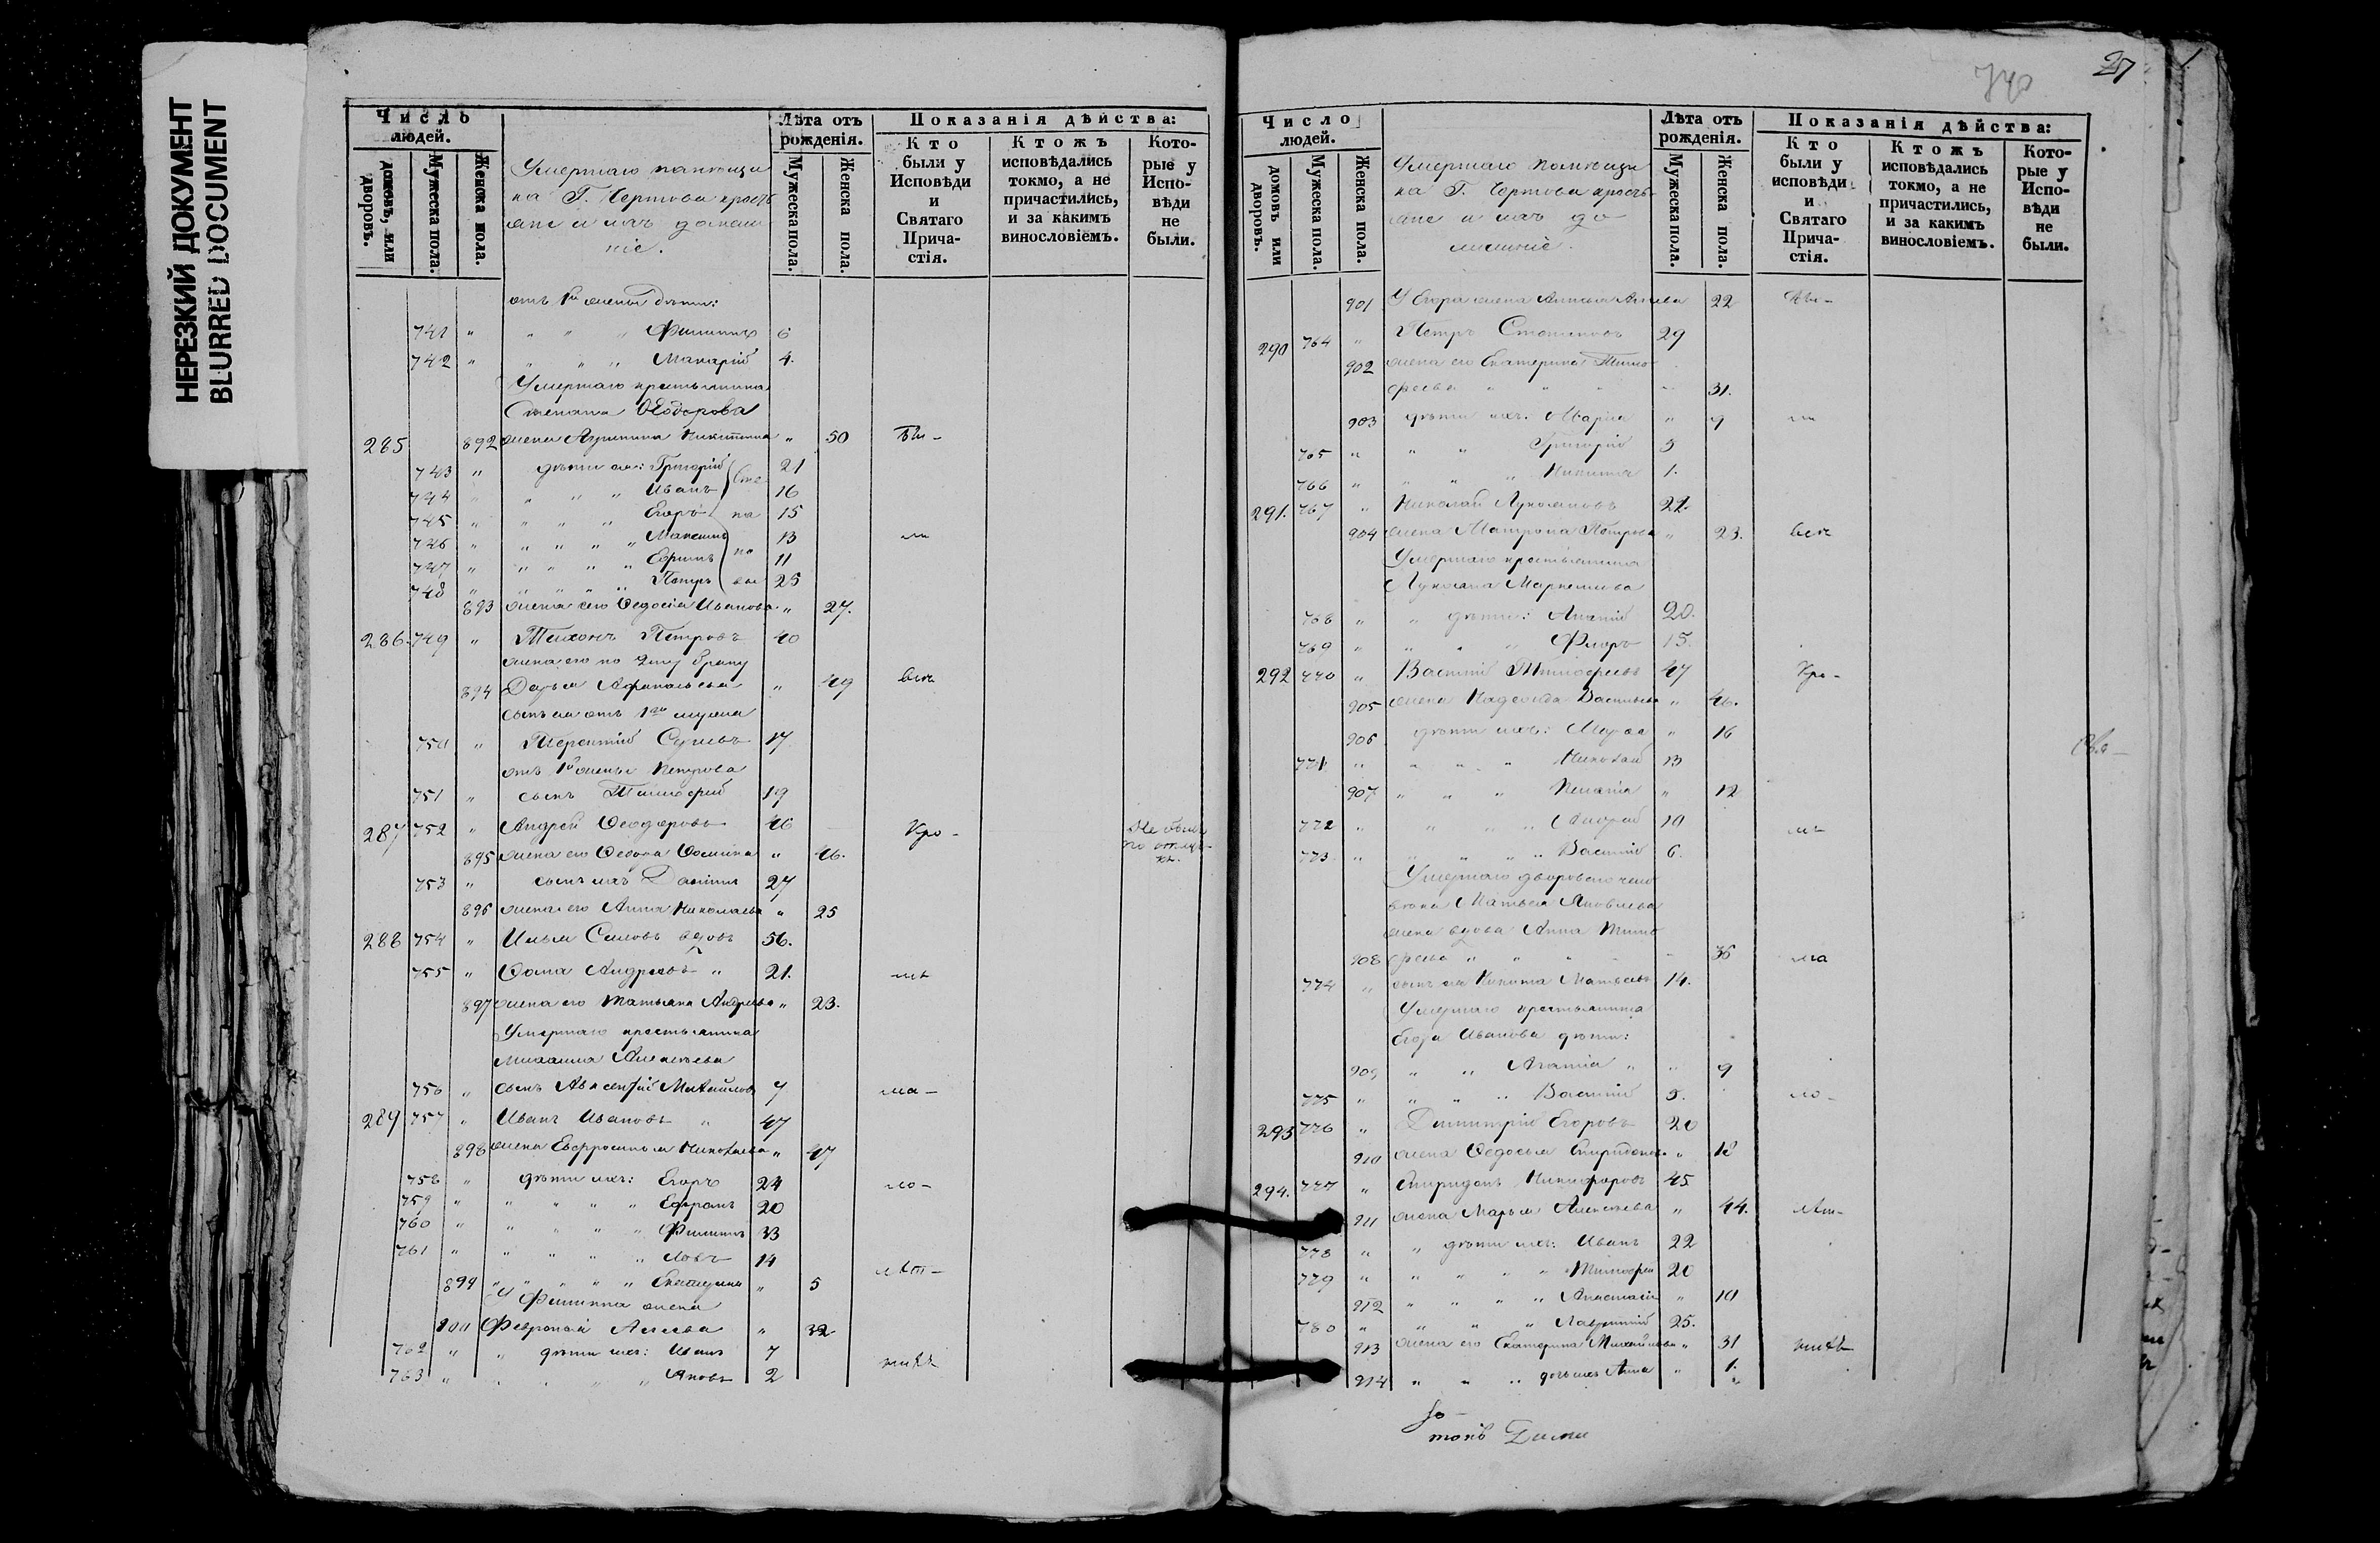 НЕРЕЗКИЙ ДОКУМЕНТ
BLURRED DOCUMENT
Число людей.
домовъ, или дворовъ.
Мужеска пола.
Женска пола.
Умершаго помѣщи
ка Г. Чертова кресть
яне и ихъ домаш
ніе.
Лѣта отъ рожденія.
Мужеска пола.
Женска пола.
Показанія дѣйства:
Кто были у Исповѣди и Святаго Прича-стія.
Ктожъ исповѣдались токмо, а не причастились, и за какимъ винословіемъ.
Кото-рые у Испо-вѣди не были.
отъ 1й жены дѣти:
741 " " " " Филиппъ 6
742 " " " " Макарій 4.
Умершаго крестьянина
Стефана Ѳеодорова
285 892 жена Агрипина Никитина " 50
743 " дѣти ихъ: Григорій 21
744 " " " " Иванъ 16
745 " " " " Егоръ 15
746 " " " " Максимъ 13
747 " " " " Ефимъ 11
748 " " " " Петръ 25
893 жена его Ѳедосія Иванова " 27.
286. 749 " Тихонъ Петровъ 40
жена его по 2му браку
894 Дарья Афанасьева " 49
сынъ ея отъ 1го мужа
750 " Терентій 17
отъ 1й жены Петрова
751 " сынъ Тимофей 19
287 752 " Андрей Ѳеодоровъ 46 Не былъ по отлуч-кѣ.
895 жена его Ѳедора Ѳомина " 46.
753 " сынъ ихъ Даніилъ 27
896 жена его Анна Николаева " 25
288 754 " Илья Силовъ вдовъ 56.
755 " Ѳома Андреевъ " 21.
897 жена его Татьяна Андреева " 23.
Умершаго крестьянина
Михаила Алексѣева
756 " сынъ Авксентій Михайловъ 7
289 757 " Иванъ Ивановъ " 47
898 жена Евфросинья Николаева " 47
758 " дѣти ихъ: Егоръ 24
759 " " " " Ефремъ 20
760 " " " " Филиппъ 33
761 " " " " Іовъ 14
899 " " " " Екатерина " 5
У Филиппа жена
900 Февронія " 32
762 " " дѣти ихъ: Иванъ 7
763 " " " " Яковъ 2
740
27
Число людей.
домовъ или дворовъ.
Мужеска пола.
Женска пола.
Умершаго Помѣщи
ка Г. Чертова кресть
яне и ихъ до
машніе.
Лѣта отъ рожденія.
Мужеска пола.
Женска пола.
Показанія дѣйства:
Кто были у исповѣди и Святаго Прича-стія.
Ктожъ исповѣдались токмо, а не причастились, и за какимъ винословіемъ.
Кото-рые у Испо-вѣди не были.
901 У Егора жена 22
290 764 " Петръ Степановъ 29
902 жена его Екатерина Тимо
феева " " " 31.
903 дѣти ихъ: Марія " 9
765 " " " Григорій 3
766 " " " " Никита 1.
291. 767 " Николай Лукояновъ 22
904 жена Матрона Петрова " 23.
Умершаго крестьянина
Лукояна
768 " " дѣти: Ананій 20.
769 " " " " Флоръ 15.
292 770 " Василій Тимофеевъ 47
905 жена Надежда Васильева " 46.
906 дѣти ихъ: " 16
771 " " " " Николай 13
907 " " " Ксенія " 12
772 " " " " Андрей 10
773 " " " " Василій 6.
Умершаго двороваго чело
вѣка Матвея Яковлева
жена вдова Анна Тимо
908 феева " " " 36
774 " сынъ ея Никита Матвеевъ 14.
Умершаго крестьянина
Егора Иванова дѣти:
909 " " Агафія " " 9
775 " " " " Василій 5.
293 776 " Димитрій Егоровъ 20
910 жена Ѳедосья Спиридонова " 18
294. 777 " Спиридонъ Никифоровъ 45.
911 жена Марья Алексѣева " 44.
778 " " дѣти ихъ: Иванъ 22
779 " " " " Тимофей 20
912 " " " " Анастасія " 10
780 " " " " Лаврентій 25.
913 жена его Екатерина Михайлова " 31
914 " " " дочь ихъ Анна " 1.